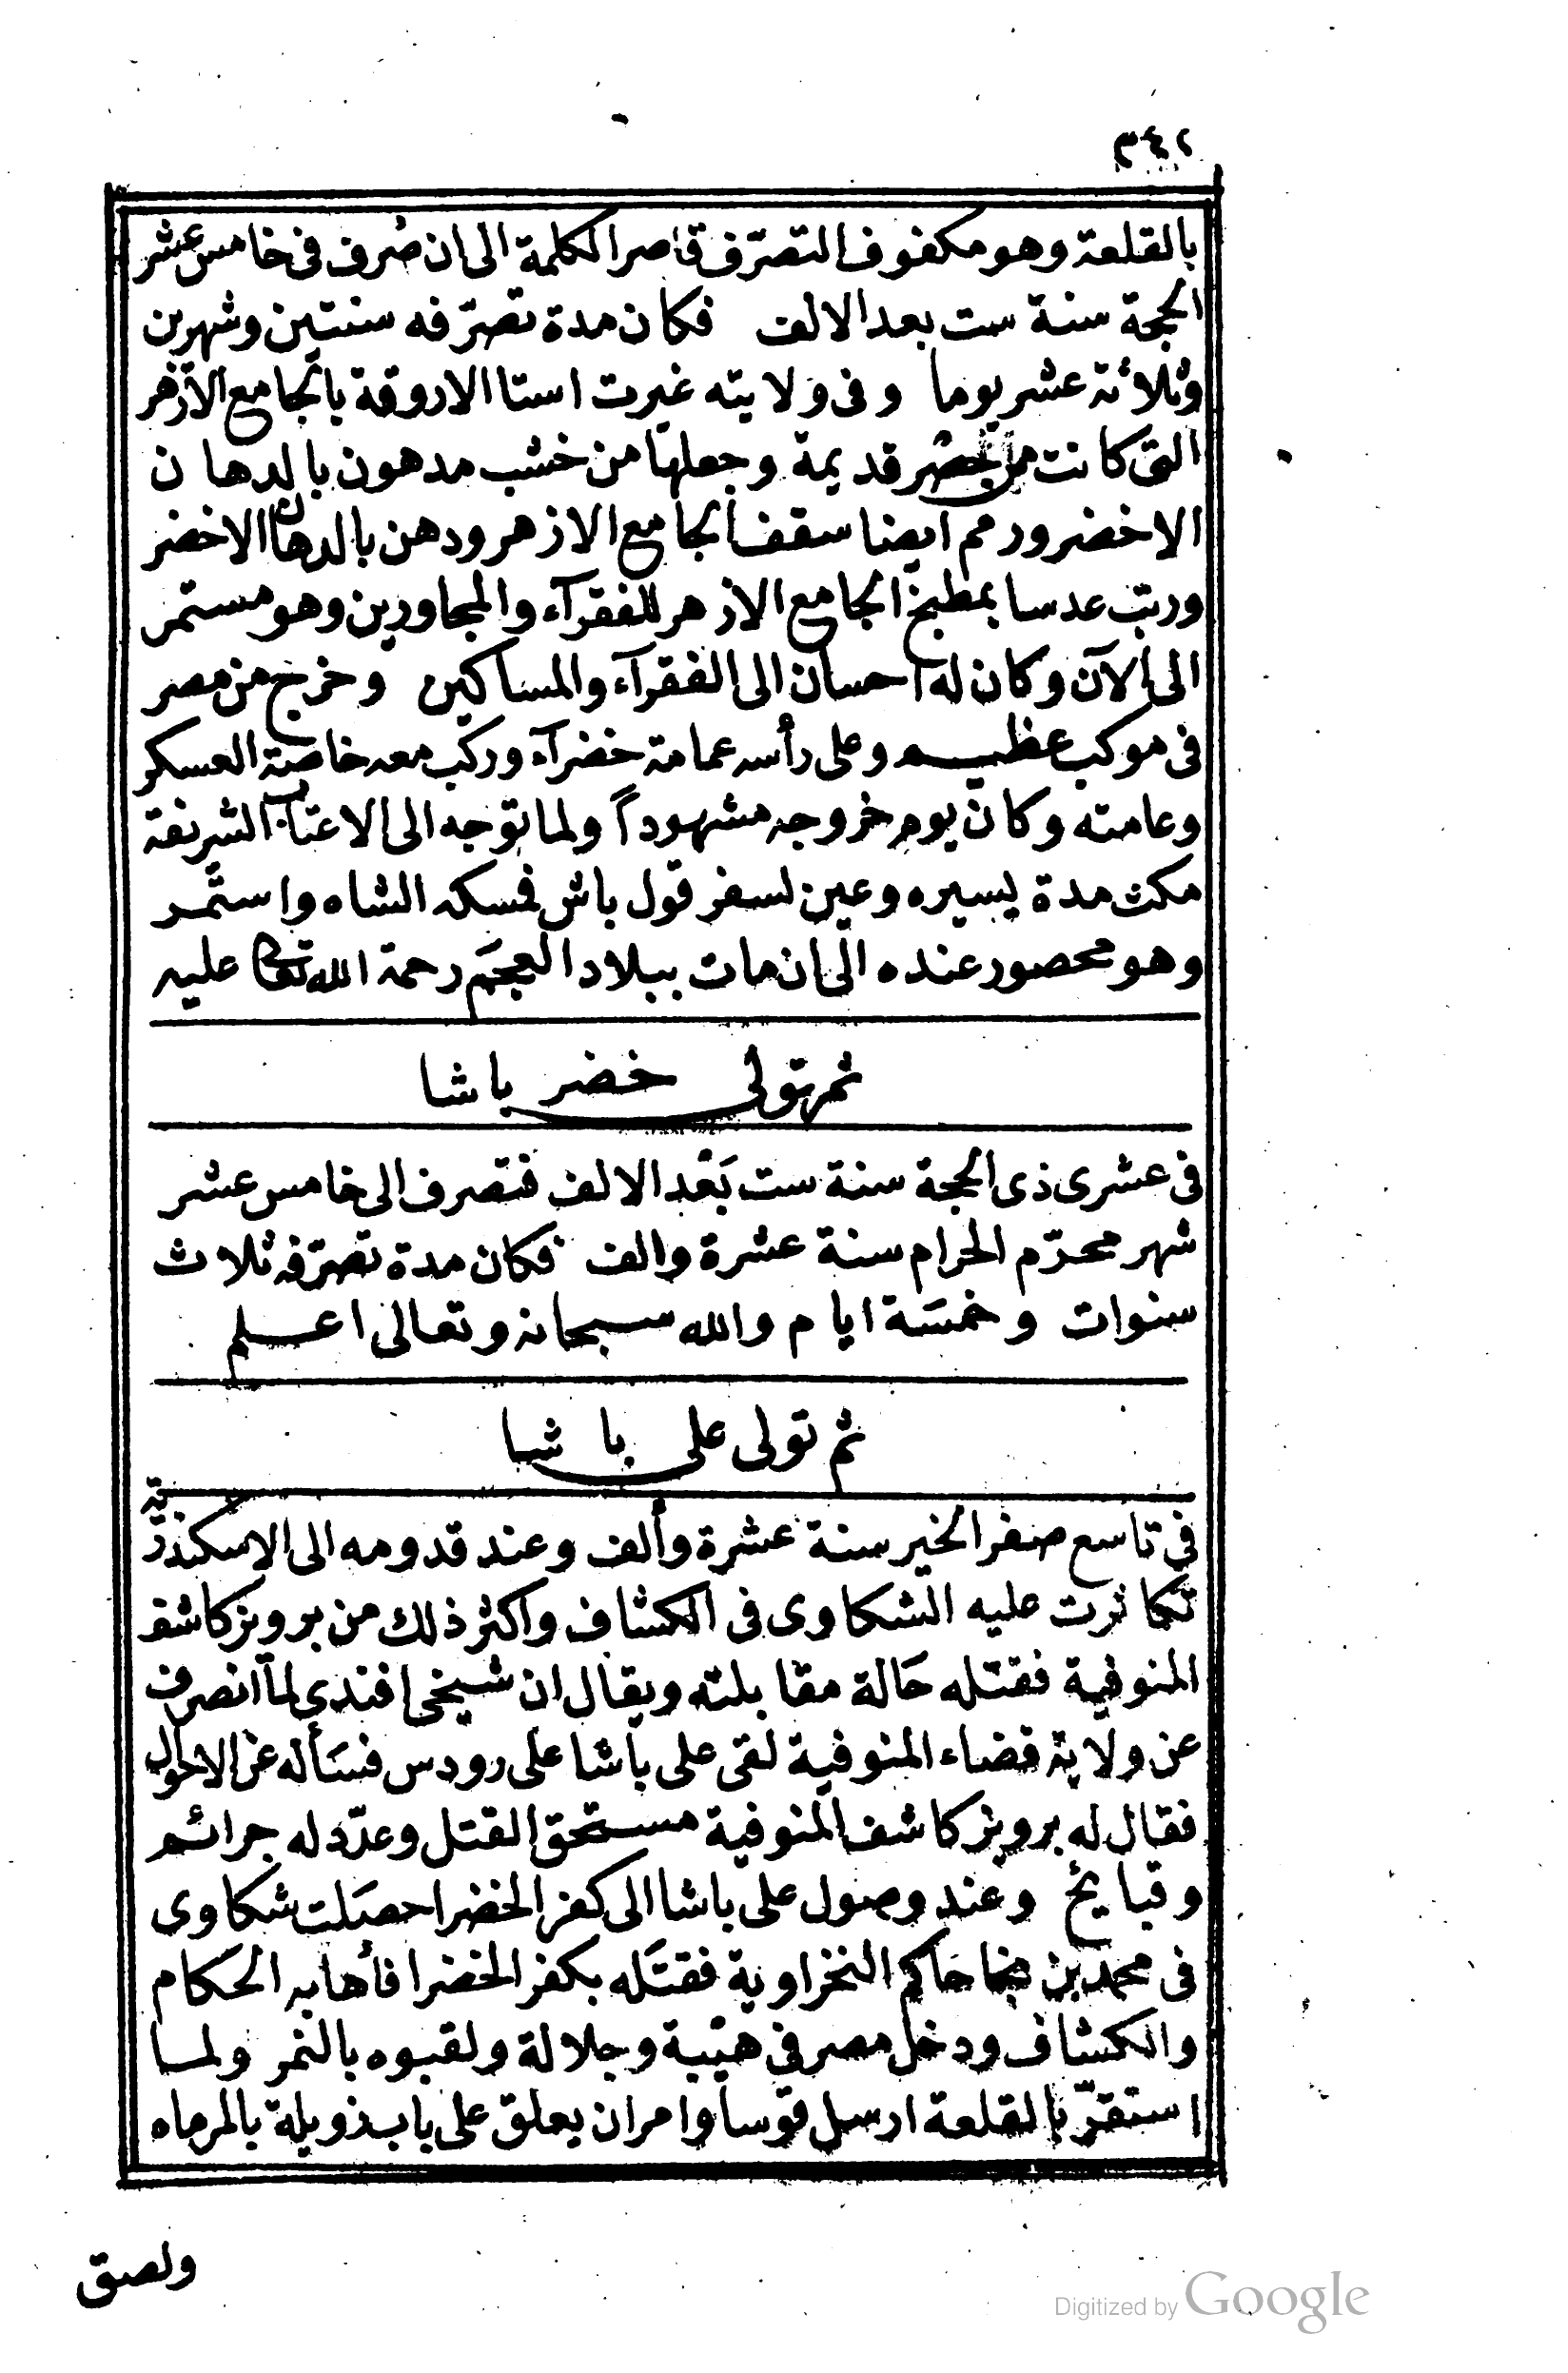 ٣٤٢
بالقلعة وهو مكفوف التصرّف قاصر الكلمة الى ان صُرف فى خامس عشر
الحجة سنة ست بعد الالف فكان مدة تصرّفه سنتين وشهرين
وثلاثة عشر يوما وفى ولايته غيرت استا الاروقة بالجامع الازهر
التى كانت من حصر قديمة وجعلها من خشب مدهون بالدهان
الاخضر ورمم ايضا سقف الجامع الازهر ودهن بالدهان الاخضر
ورتب عدسا بمطبخ الجامع الازهر للفقرآء والمجاورين وهو مستمر
الى الآن وكان له احسان الى الفقرآء والمساكين وخرج من مصر
فى موكب عظيم وعلى رأسه عمامة خضرآء وركب معه خاصة العسكر
وعامته وكان يوم خروجه مشهوداً ولما توجه الى الاعتاب الشريفة
مكث مدة يسيره وعين لسفر قول باش فمسكه الشاه واستمر
وهو محصور عنده الى ان مات ببلاد العجم رحمة الله تعالى عليه
ثم تولى خضر باشا
فى عشرى ذى الحجة سنة ست بَعْد الالف فتصرف الى خامس عشر
شهر محرّم الحرام سنة عشرة والف فكان مدة تصرّفه ثلاث
سنوات وخمسَة ايام والله سبحانه وتعالى اعلم
ثم تولى على باشا
فى تاسع صفر الخير سنة عشرة وألف وعند قدومه الى الاسكندرية
تكاثرت عليه الشكاوى فى الكشاف واكثر ذلك من برويز كاشف
المنوفية فقتله حَالة مقابلته ويقال ان شيخى افندى لما انصرف
عن ولاية قضاء المنوفية لقى على باشا على رودس فسَأله عن الاحوال
فقال له برويز كاشف المنوفية مستحق القتل وعدّد له جرائم
وقبايح وعند وصول على باشا الى كفر الخضرا حصَلت شكاوى
فى محمد بن حاكم النخراوية فقتَله بكفر الخضرا فأهابه الحكام
والكشاف ودخل مصر فى هيبة وجلالة ولقبوه بالنمر ولما
استقرّ بالقلعة ارسل قوسا وامر ان يعلق على باب زويلة بالمرماه
ولصق
Digitized by Google